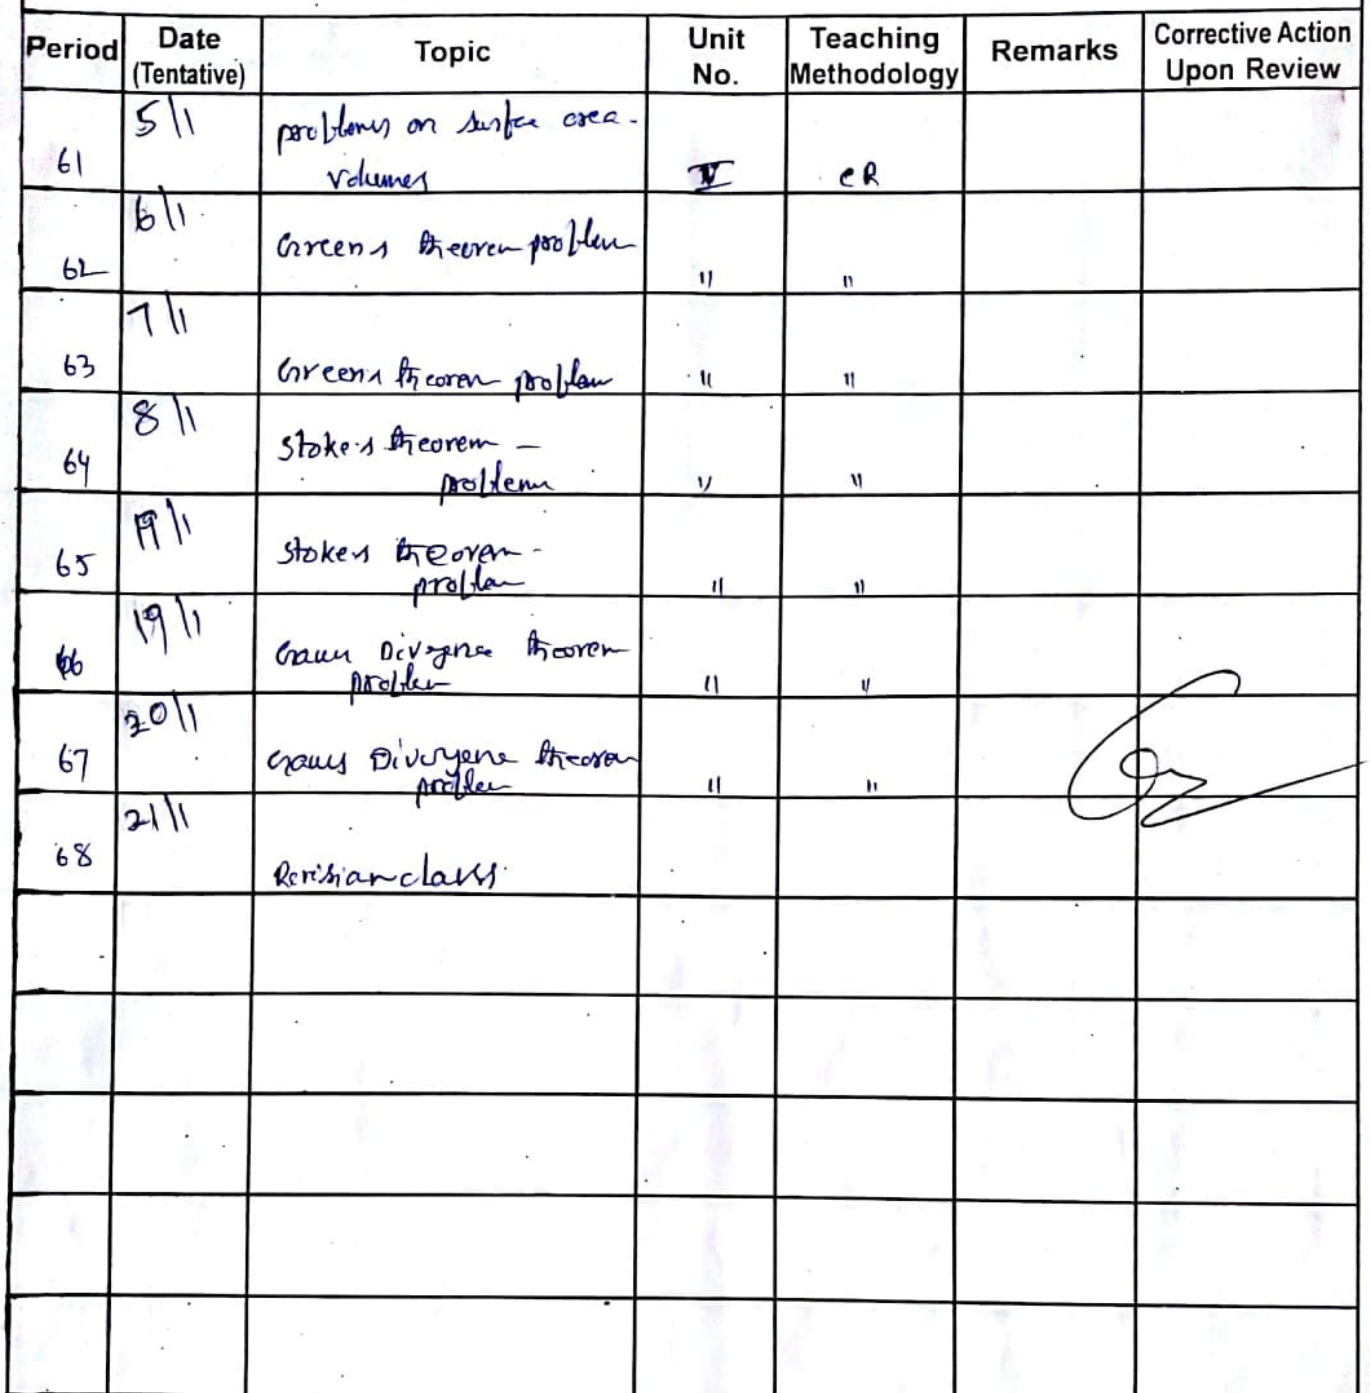 Period Date (Tentative) Topic Unit No. Teaching Methodology Remarks Corrective Action Upon Review
61 5/1 problems on surface area -
volumes CR
62 6/1 Greens theorem problem " "
63 7/1 Greens theorem problem " "
64 8/1 Stoke's theorem -
problem " "
65 /1 Stokes theorem -
problem " "
66 19/1 Gauss Divergence theorem
problem " "
67 20/1 Gauss Divergence theorem
problem " "
68 21/1 Revision class